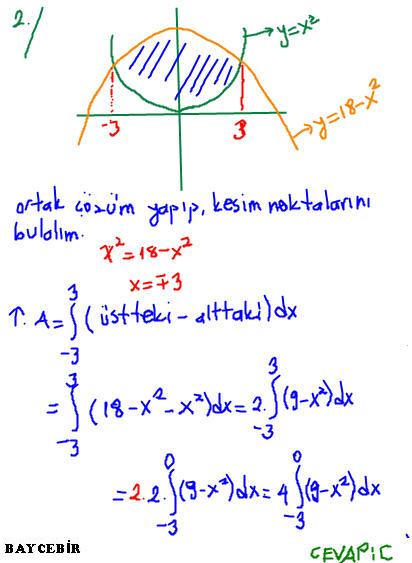 2./
y=x²
-3
3
y=18-x²
ortak çözüm yapıp, kesim noktalarını
bulalım.
x²=18-x²
x=∓3
↑. A=∫₋₃³(üstteki-alttaki)dx
=∫₋₃³(18-x²-x²)dx=2.∫₋₃³(9-x²)dx
=2.2.∫₋₃⁰(9-x²)dx=4∫₋₃⁰(9-x²)dx
BAYCEBİR
CEVAP:C